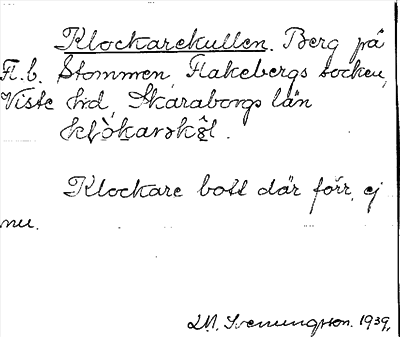 Klockarekullen. Berg på
Fl. b. Stommen, Flakebergs socken,
Viste hrd, Skaraborgs län
Klockare bott där förr, ej
nu.
Svenungsson. 1939.